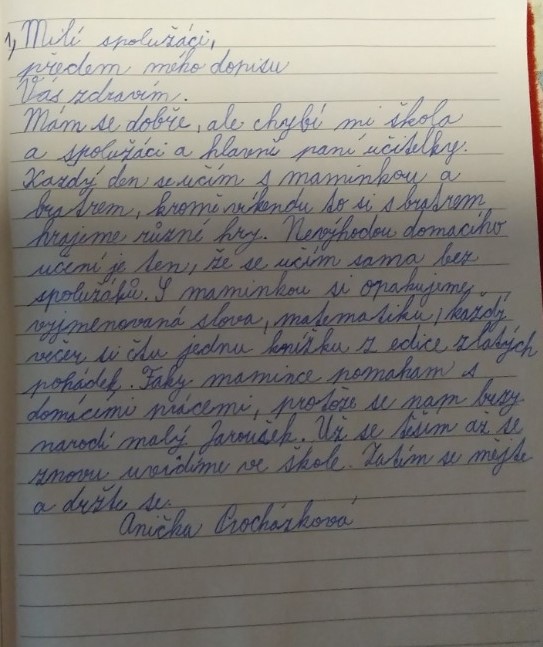 1, Milí spolužáci,
předem mého dopisu
Vás zdravím.
Mám se dobře, ale chybí mi škola
a spolužáci a hlavně paní učitelky.
Každý den se učím s maminkou a
bratrem, kromě víkendu to si s bratrem
hrajeme různé hry. Nevýhodou domacího
učení je ten, že se učím sama bez
spolužáků. S maminkou si opakujeme
vyjmenovaná slova, matematiku, každý
večer si čtu jednu knížku z edice zlatých
pohádek. Taky mamince pomaham s
domácími prácemi, protože se nam brzy
narodí malý Jaroušek. Už se těším až se
znovu uvidíme ve škole. Zatím se mějte
a držte se.
Anička Procházková